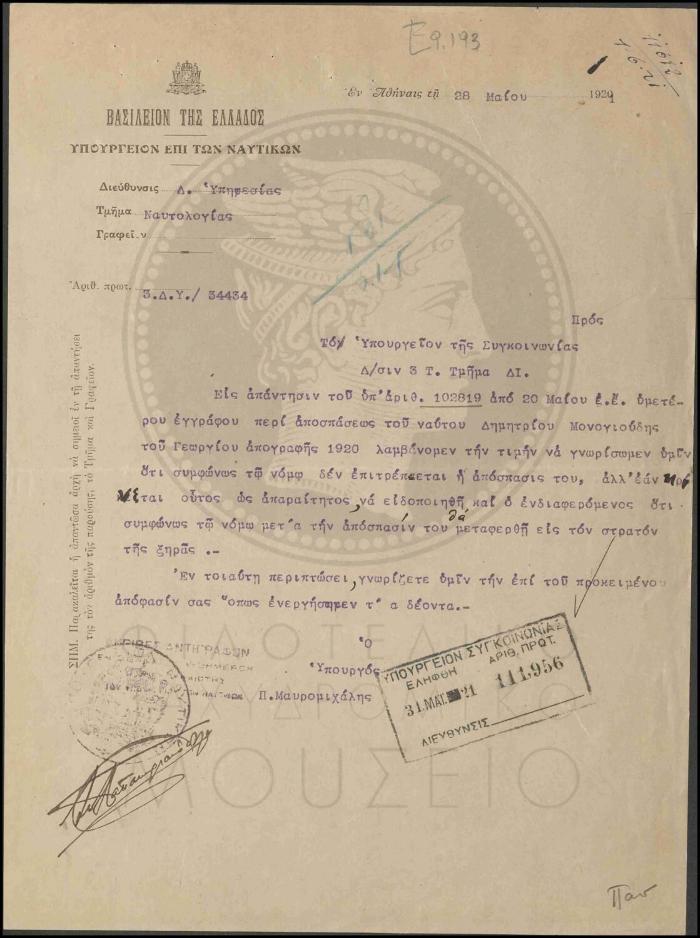 Ε9.193
1.6.21
Ἐν Ἀθήναις τῇ 28 Μαίου 1921
ΒΑΣΙΛΕΙΟΝ ΤΗΣ ΕΛΛΑΔΟΣ
ΥΠΟΥΡΓΕΙΟΝ ΕΠΙ ΤΩΝ ΝΑΥΤΙΚΩΝ
Διεύθυνσις Δ. Ὑπηρεσίας
Τμῆμα Ναυτολογίας
Γραφεῖον
Ἀριθ. πρωτ. 3.Δ.Υ./ 34434
Πρός
Τό Ὑπουργεῖον τῆς Συγκοινωνίας
Δ/σιν 3 Τ. Τμῆμα ΔΙ.
Εἰς ἀπάντησιν τοῦ ὑπ'ἀριθ. 102819 ἀπό 20 Μαίου ἐ.ἔ. ὑμετέ-
ρου ἐγγράφου περί ἀποσπάσεως τοῦ ναύτου Δημητρίου Μονογιούδης
τοῦ Γεωργίου ἀπογραφῆς 1920 λαμβάνομεν τήν τιμήν νά γνωρίσωμεν ὑμῖν
ὅτι συμφώνως τῷ νόμῳ δέν ἐπιτρέπεται ἡ ἀπόσπασις του, ἀλλ'ἐάν κρί
νεται οὗτος ὡς ἀπαραίτητος, νά εἰδοποιηθῇ καί ὁ ἐνδιαφερόμενος ὅτι
συμφώνως τῷ νόμῳ μετ'ά τήν ἀπόσπασίν του θά μεταφερθῇ εἰς τόν στρατόν
τῆς ξηρᾶς .-
Ἐν τοιαύτῃ περιπτώσει, γνωρίζετε ὑμῖν τήν ἐπί τοῦ προκειμένου
ἀπόφασίν σας ὅπως ἐνεργήσωμεν τ' α δέοντα.-
Ὁ
Ὑπουργός
Π.Μαυρομιχάλης
ΑΚΡΙΒΕΣ ΑΝΤΙΓΡΑΦΟΝ
ΥΠΟΥΡΓΕΙΟΝ ΣΥΓΚΟΙΝΩΝΙΑΣ
ΕΛΗΦΘΗ ΑΡΙΘ. ΠΡΩΤ.
31.ΜΑΪ. 21 111,956
ΔΙΕΥΘΥΝΣΙΣ
ΣΗΜ. Παρακαλεῖται ἡ ἀπαντῶσα ἀρχή νά σημειοῖ ἐν τῇ ἀπαντήσει
της τόν ἀριθμόν τῆς παρούσης, τό Τμῆμα καί Γραφεῖον.
ΦΙΛΟΤΕΛΙΚΟ
ΜΟΥΣΕΙΟ